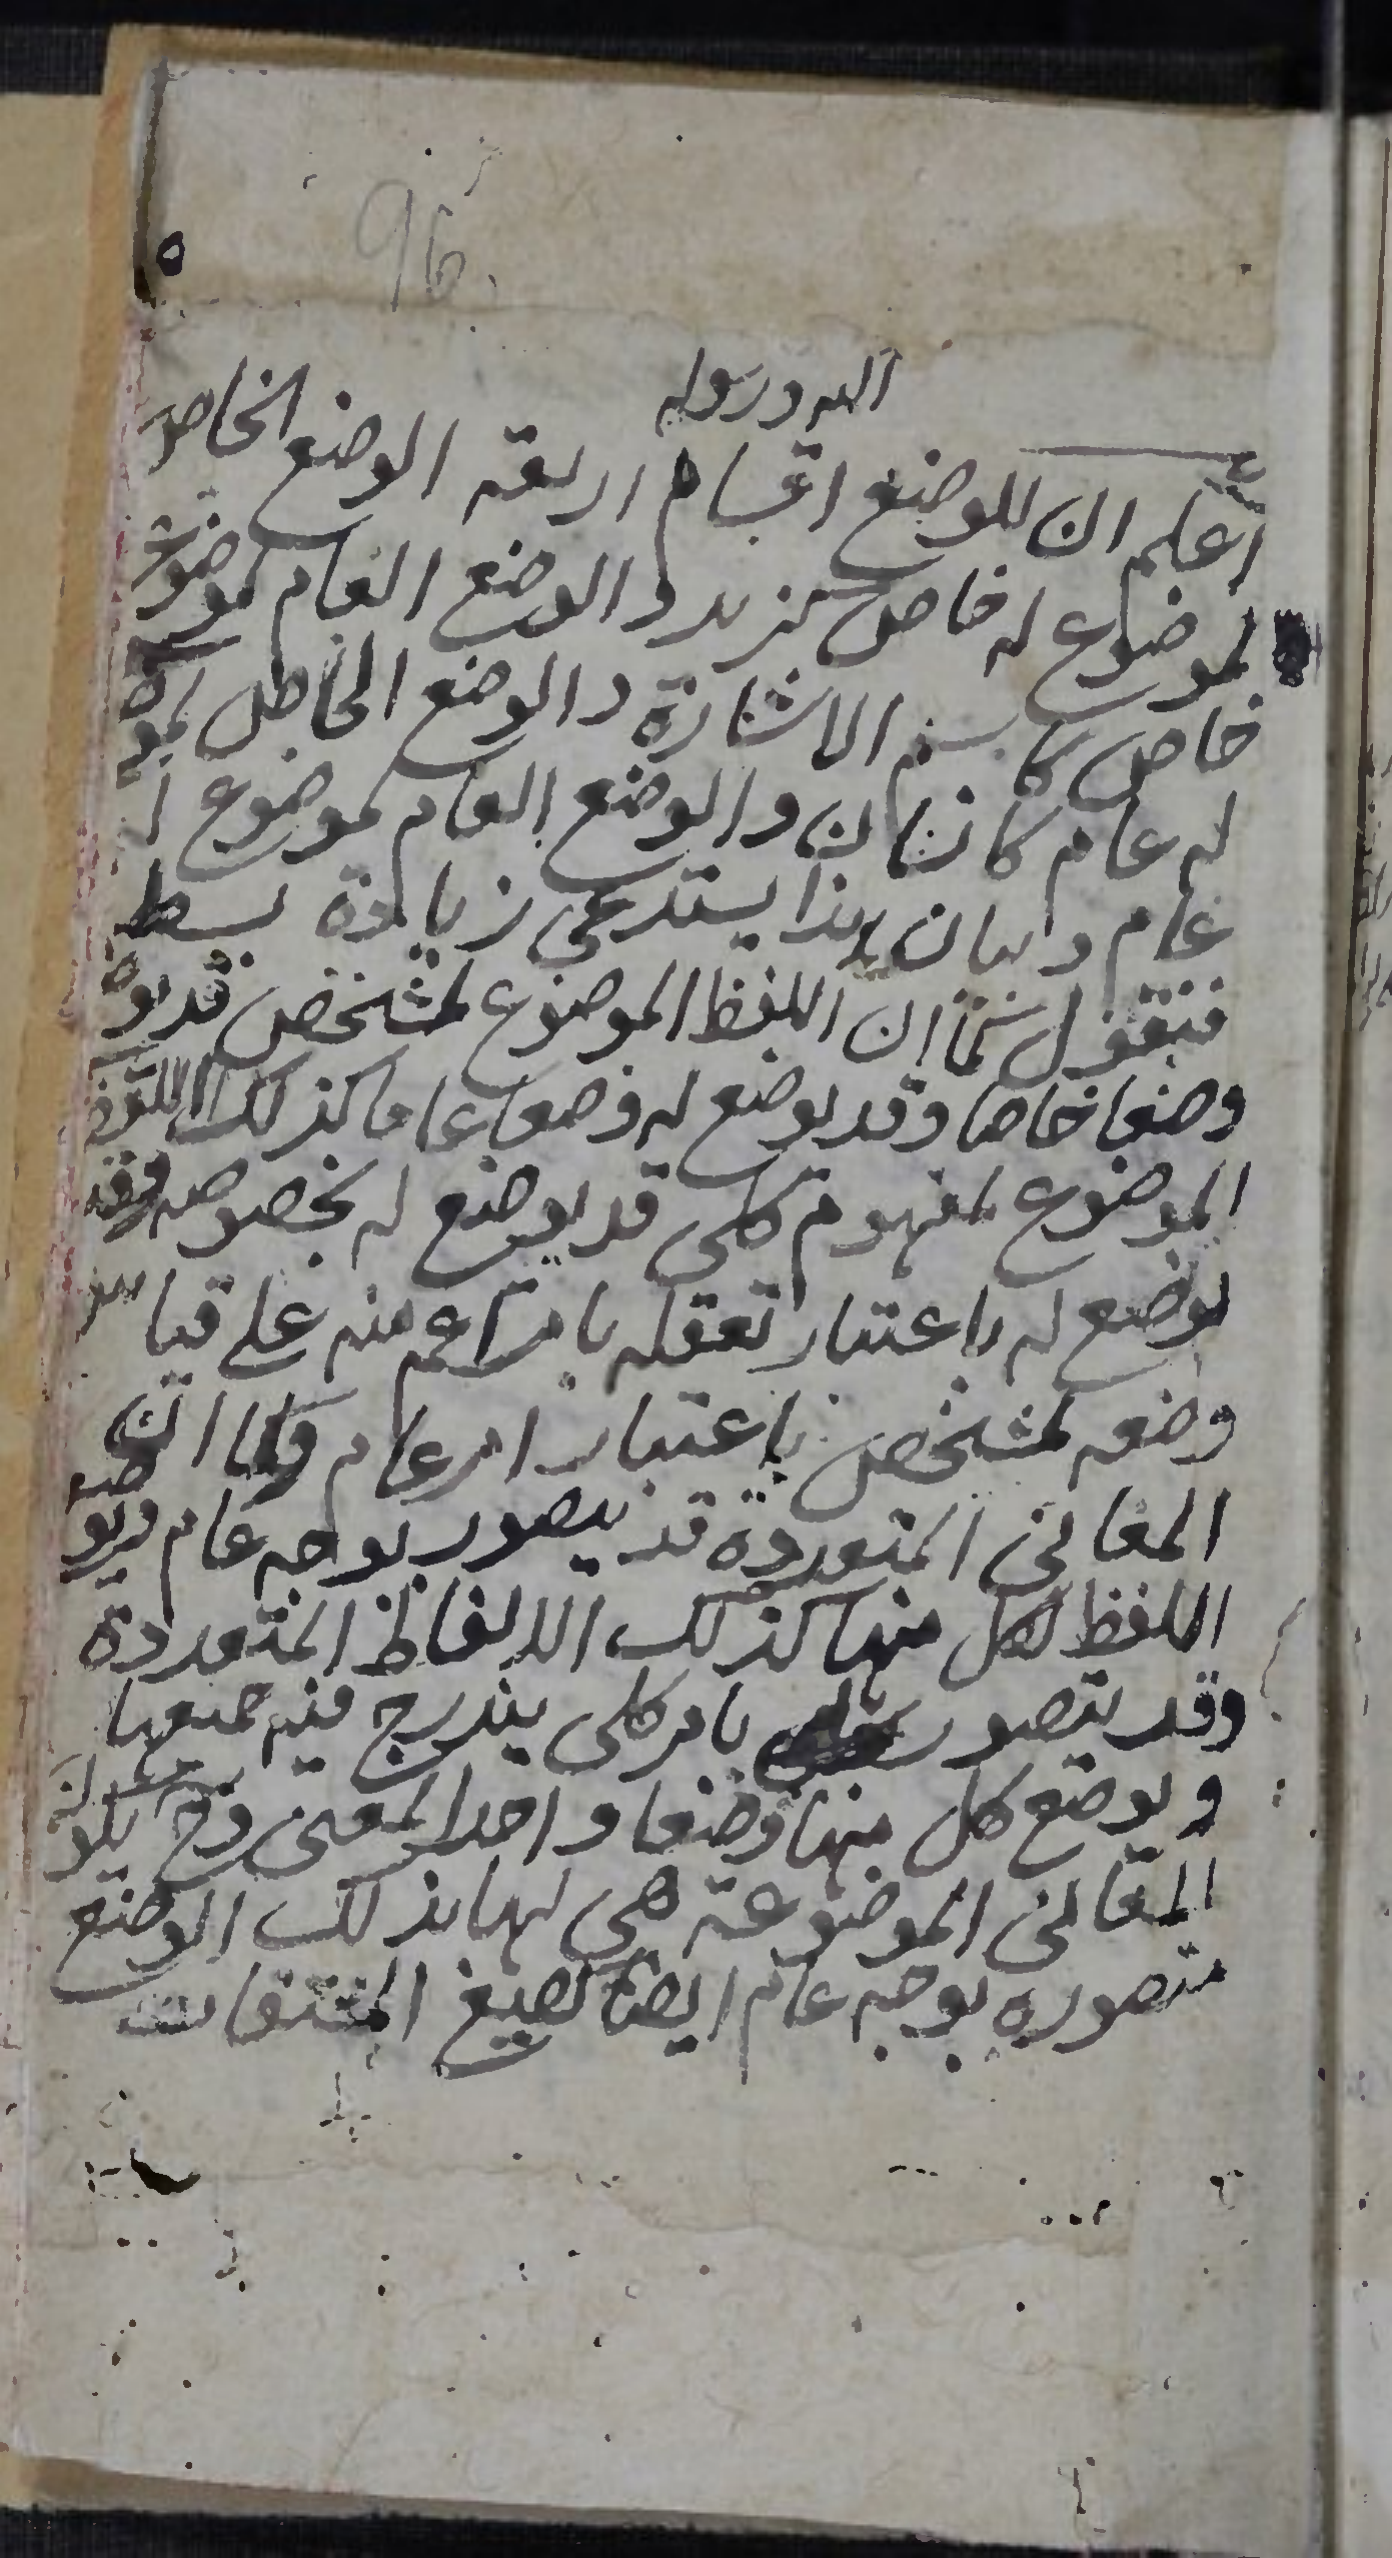 96
الله ورسوله
اعلم ان للوضع اقسام اربعة الوضع الخاص
لموضوع له خاص كزيد والوضع العام لموضوع
خاص كاسم الاشارة والوضع الخاص لموضوع
له عام كانسان والوضع العام لموضوع
عام وبيان هذا يستدعى زيادة بسط
فنقول كما ان اللفظ الموضوع لمشخص قد يوضع
وضعا خاصا وقد يوضع له وضعا عاما كذلك اللفظ
الموضوع لمفهوم كلى قد يوضع له بخصوصه وقد
يوضع له باعتبار تعقله بامر اعم منه على قياس
وضعه لمشخص باعتبار امر عام وكما ان
المعانى المتعددة قد يتصور بوجه عام ويوضع
اللفظ لكل منها كذلك الالفاظ المتعددة
وقد يتصور بامر كلى يندرج فيه جميعها
ويوضع كل منها وضعا واحدا لمعنى وح يكون
المعانى الموضوعة هى لها بذلك الوضع
متصوره بوجه عام ايضا كصيغ المشتقات